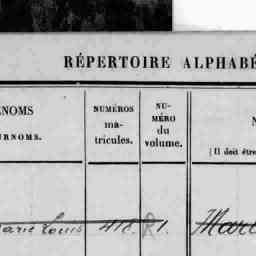 RÉPERTOIRE ALPHABÉ
ÉNOMS
URNOMS.
NUMÉROS
ma-
tricules.
NU-
MÉRO
du
volume.
N
(Il doit être
Marie Louis 418. R 1.